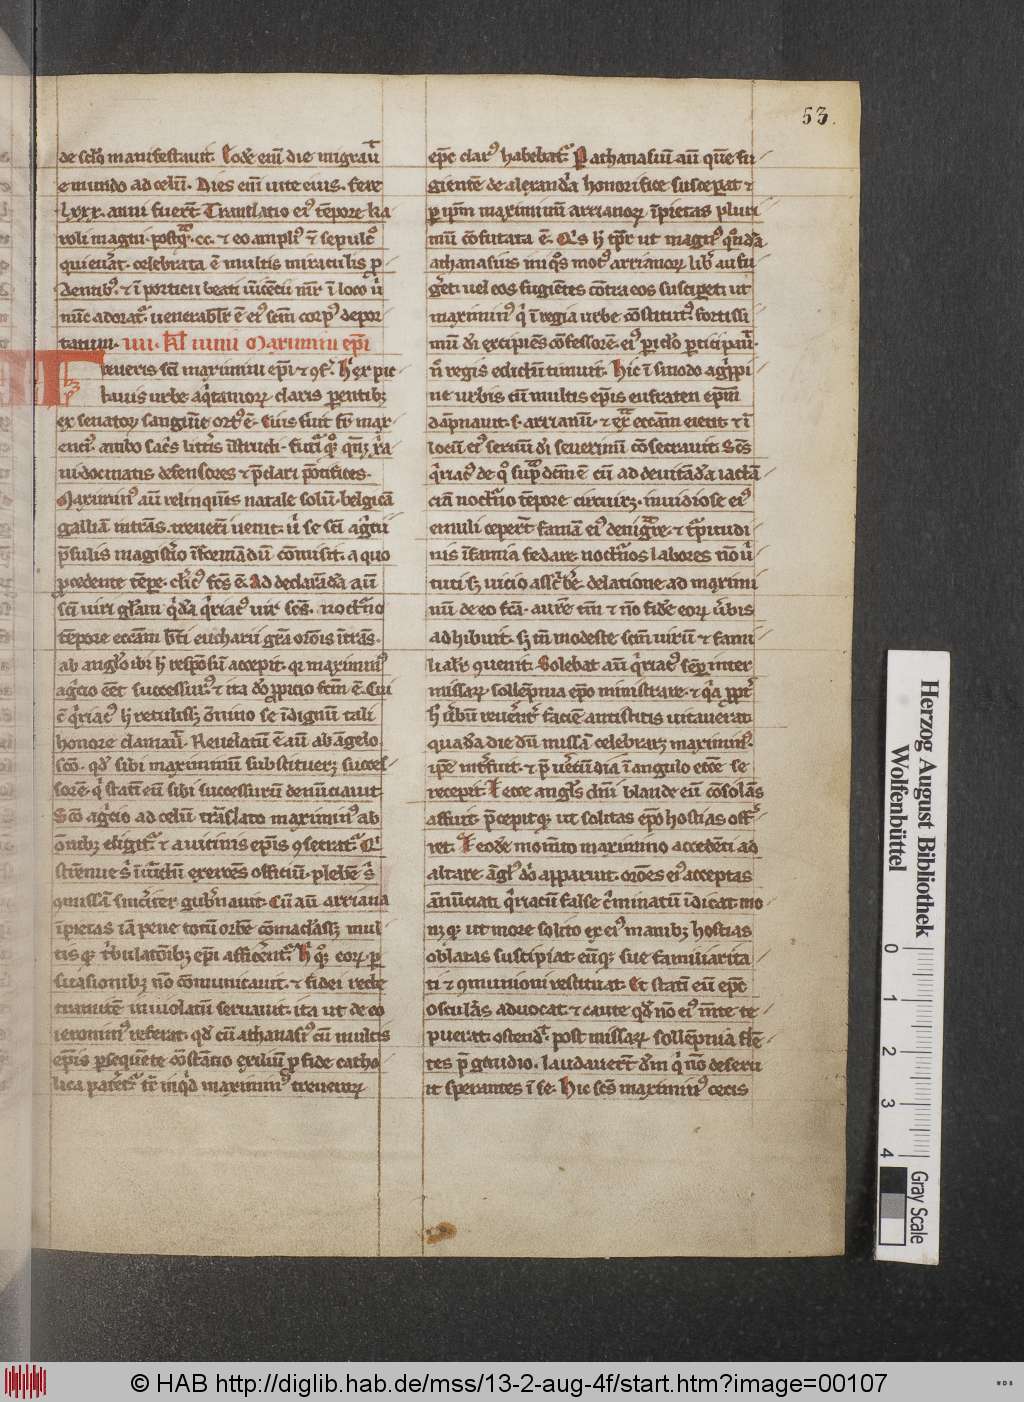 53.
de sclo manifestavit. Eodē eniͫ die migrau̅
e mundo ad celū. Dies eniͫ uite eius. fere
lxxx. anni fuer̅t. Translatio eiꝰ tēpore ka
roli magni. cc. ⁊ eo ampliꝰ ī sepulcͦ
celebrata ē multis miraculis ꝑ
dentibꝰ. ⁊ ī porticu beati ī loco
nūc adoratͬ. uenerabilͬ ē eiꝰ scͫ corpꝰ depor
tatum. iiii. kl̅ iunii Maximini ep̅i
Treueris. sc̅i maximini ep̅i ⁊ ↄf. Hͥ ex pic
tauis urbe aq̇tanioꝝ. claris parentibꝫ
ex senatoꝝ sanguine ortꝰ ē. fuit fr̅ max
enciꝰ. ambo sacͥs litteris īstructi.
docmatis defensores ⁊ p̅clari pōtifices.
Maximinꝰ au̅ relinquēs natale solū. belgicā
galliā intrās. treueri uenit. se sc̅i agͥtii
p̅sulis magistͥo īformādū cōmisit. a quo
ꝓcedente tēpͬe. clīcꝰ fc̅s ē. Ad declarādā au̅
sc̅i uiri glāͫ qͥdā qͥriacꝰ uir sc̅s. noctͥno
tēpore ecc̅am bt̅i eucharii gr̅a oro̅is ītrās.
ab angl̅o ibi hͦ respōsū accepit. qꝛ maximinꝰ
agͥcio eēt successurꝰ. ⁊ ita dō ꝓpicio fc̅m ē. Cui
cͫ qͥriacꝰ hͦ retulissꝫ. ōnino se īdignū tali
honore clamauͥ. Reuelatū ē au̅ ab āngelo
sc̅o. qd̅ sibi maximinū substituerꝫ succes
sorē. qͥ statī eū sibi successurū denūciauit.
Sc̅o agͥcio ad celū trāslato maximinꝰ ab
ōnibꝫ eligitͬ. ⁊ a uicinis ep̅is ↄsecratͬ.
exercēs officiū. plebē sͥ
ↄmissā sincͥter gubͬnauit. Cū au̅ arriana
īpietas iā pene totū orbē cōmaclassꝫ. mul
tisqꝫ tͥbulatōibꝫ ep̅i afficerētͬ. Hͥ qꝫ eoꝝ. ꝑ
suasionibꝫ nō cōmunicauit. ⁊ fidei recte
tramitē inuiolatū seruauit. ita ut de eo
ieronimꝰ referat. qd̅ cū athanasiꝰ cū multis
ep̅is ꝑsequēte ↄ̅stātio exiliū ꝓ fide catho
lica pateretͬ. maximinꝰ treueroꝝ
ep̅c clarꝰ habebatͬ. Athanasiū au̅ quē fu
gientē de alexandͥa honorifice suscepͥat ⁊
ꝑ ip̅m maximinū arrianoꝝ īpietas pluri
mū cōfutata ē. ut magnꝰ
athanasius iniquos motꝰ arrianoꝝ
uel eos fugiētes cōtra eos susciꝑet. ut
maximinꝰ qͥ ī regia urbe cōstitutꝰ. fortissi
mū dͥi excipiēs cōfessorē. eiꝰ ꝑiclō ꝑticipauͥ.
n̅ regis edictū timuit. Hic ī sinodo agͥppi
ne urbis cū multis ep̅is eufraten ep̅m
dāpnauit. s. arrianū. ⁊ ecc̅am eiecit. ⁊ ī
locū eiꝰ seruū dͥi seuerinū cōsecrauit. Sc̅s
qͥriacꝰ de qͦ supͣ dc̅m ē cū ad deuitādā iactā
ciā noctͥno tēpore circuirꝫ. inuidiose eiꝰ
emuli ceperͭ famā eiꝰ denigͣre. ⁊ turpitudi
nis īfamia fedare. noctͥnos labores nō
tuti sꝫ uicio ascͥbēt. delatione ad maximi
nū de eo fc̅a. aurē tn̄ ⁊ nō fidē eoꝝ ūbis
adhibuit. sꝫ tn̄ modeste sc̅m uirū ⁊ fami
liarͬ ↄuenit. Solebat au̅ qͥriacꝰ semꝑ inter
missaꝝ sollēpnia ep̅o ministrare.
faciē antistitis uitauerat.
quadā die dū missā celebrarꝫ maximinꝰ.
ip̅e ītfuit. ⁊ p̅ uercūdia ī angulo ecc̅e se
recepit. Et ecce anglꝰ dn̄i blande eū cōsolās
affuit. p̅cepitqꝫ ut solitas ep̅o hostias offͬ
ret. Et eodē momēto maximino accedēti ad
altare āglꝰ dͥi apparuit. orōes eiꝰ acceptas
ānūciat. qͥriacū false cͥminatū īdicat. mo
nꝫqꝫ ut more solito ex eiꝰ manibꝫ hostias
oblatas suscipiat. eūqꝫ sue familiarita
ti ⁊ ↄmunioni restituat. Et statī eū ep̅c
osculās aduocat. ⁊ caute qd̅ nō eiꝰ mēte te
puerat. ostendͥt. post missaꝝ sollēpnia flē
tes p̅ gaudio. laudauerͭ dm̅ qͥ nō deseru
it sperantes ī se. Hic sc̅s maximinꝰ cecis
Herzog August Bibliothek
Wolfenbüttel
0 1 2 3 4
Gray Scale
© HAB http://diglib.hab.de/mss/13-2-aug-4f/start.htm?image=00107